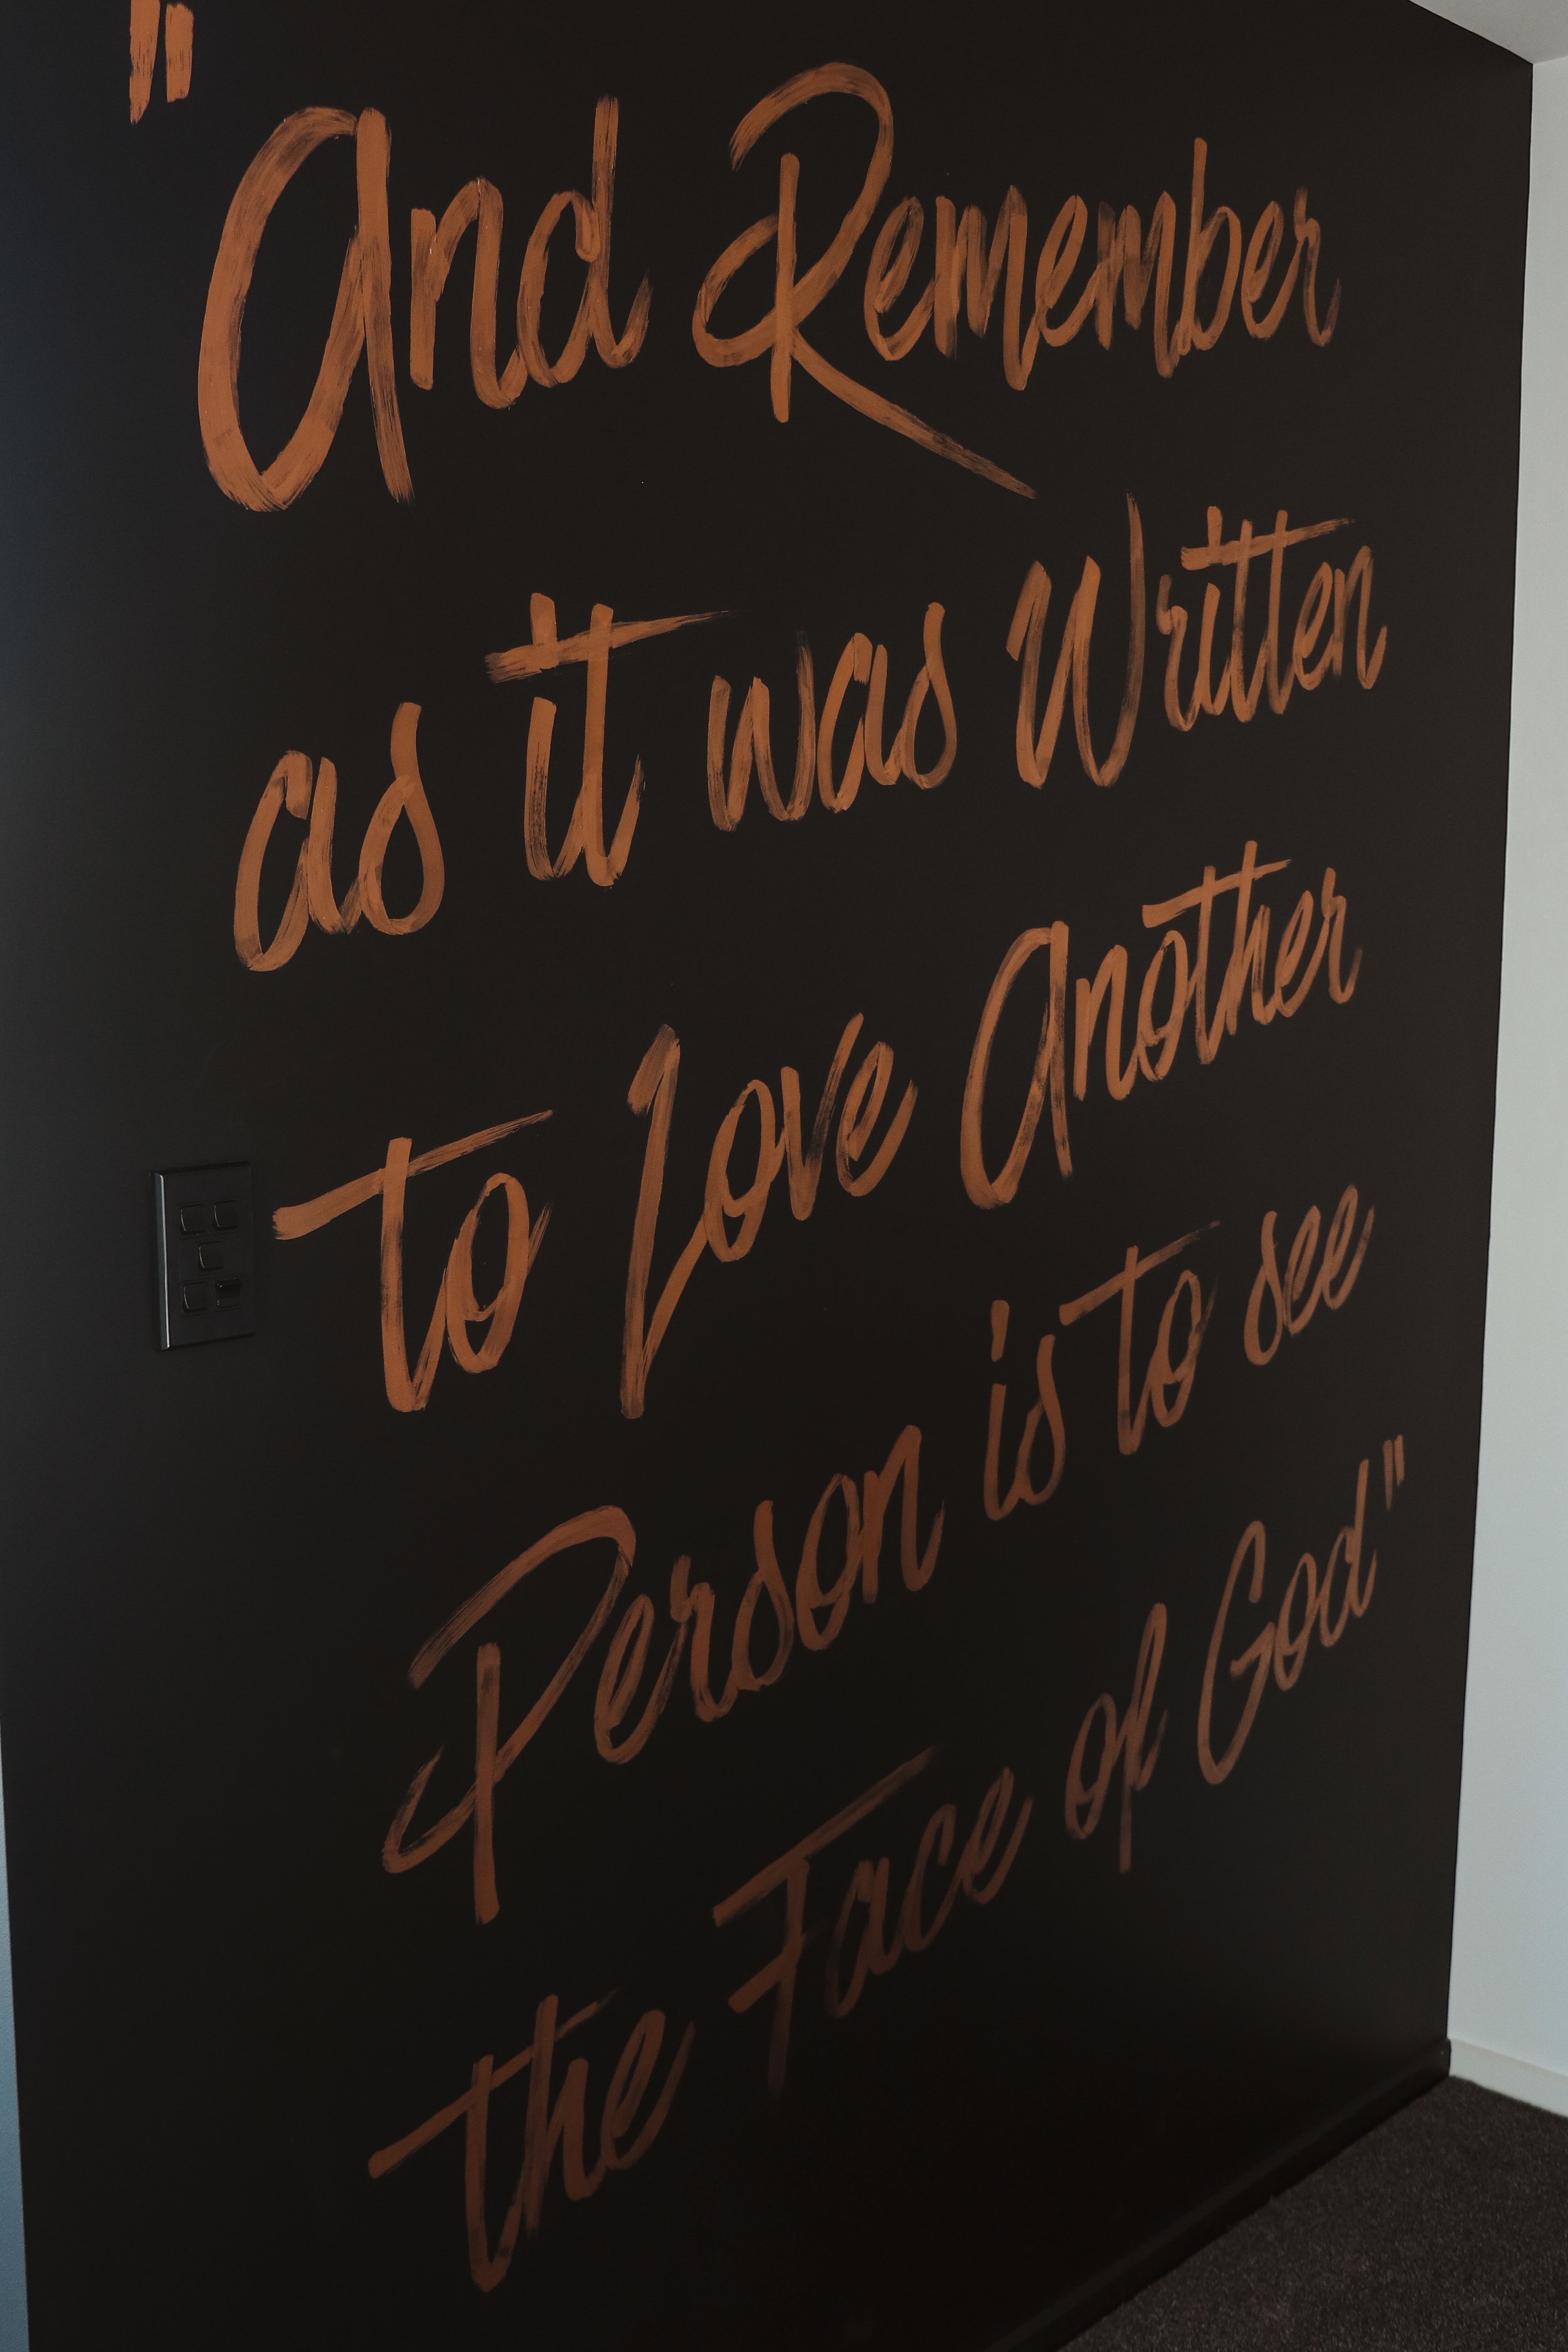 "And Remember
as it was Written
to Love Another
Person is to see
the Face of God"